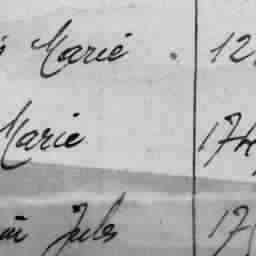 Marie 12
Marie 174
Jules 17